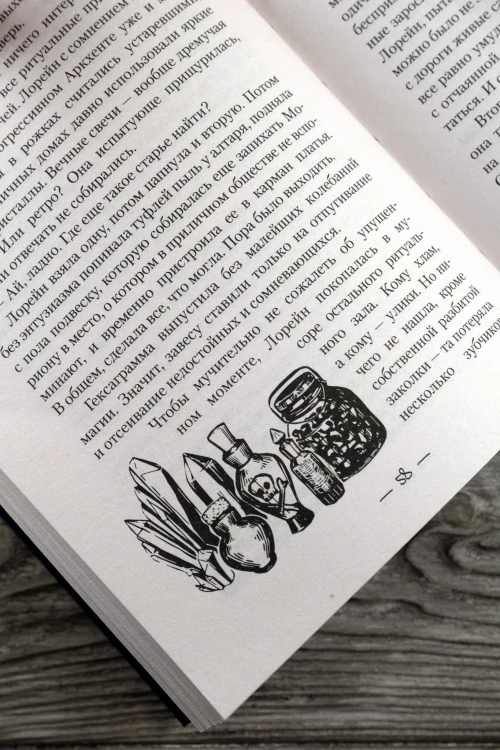 все ритуальные
ей. Лорейн с сомнением
огрессивном Аркхенте уже и
в рожках считались устаревшими
ичных домах давно использовали яркие
исталлы. Вечные свечи — вообще дремучая
Или ретро? Она испытующе прищурилась,
и отвечать не собирались.
Ай, ладно. Где еще такое старье найти?
Лорейн взяла одну, потом цапнула и вторую. Потом
без энтузиазма попинала туфлей пыль у алтаря, подняла
с пола подвеску, которую собиралась еще запихать Мо-
риону в место, о котором в приличном обществе не вспо-
минают, и временно пристроила ее в карман платья.
В общем, сделала все, что могла. Пора было выходить.
Гексаграмма выпустила без малейших колебаний
магии. Значит, завесу ставили только на отпугивание
и отсеивание недостойных и сомневающихся.
Чтобы мучительно не сожалеть об упущен-
ном моменте, Лорейн покопалась в му-
соре остального ритуаль-
ного зала. Кому хлам,
а кому — улики. Но ни-
чего не нашла, кроме
собственной разбитой
заколки — та потеряла
несколько зубчи
— 58 —
одич
беспри
ные зарос
Лорейн, пыта
можно было не
с дороги живые
все равно умуд
с отчаянной
таться. И
Вт
она